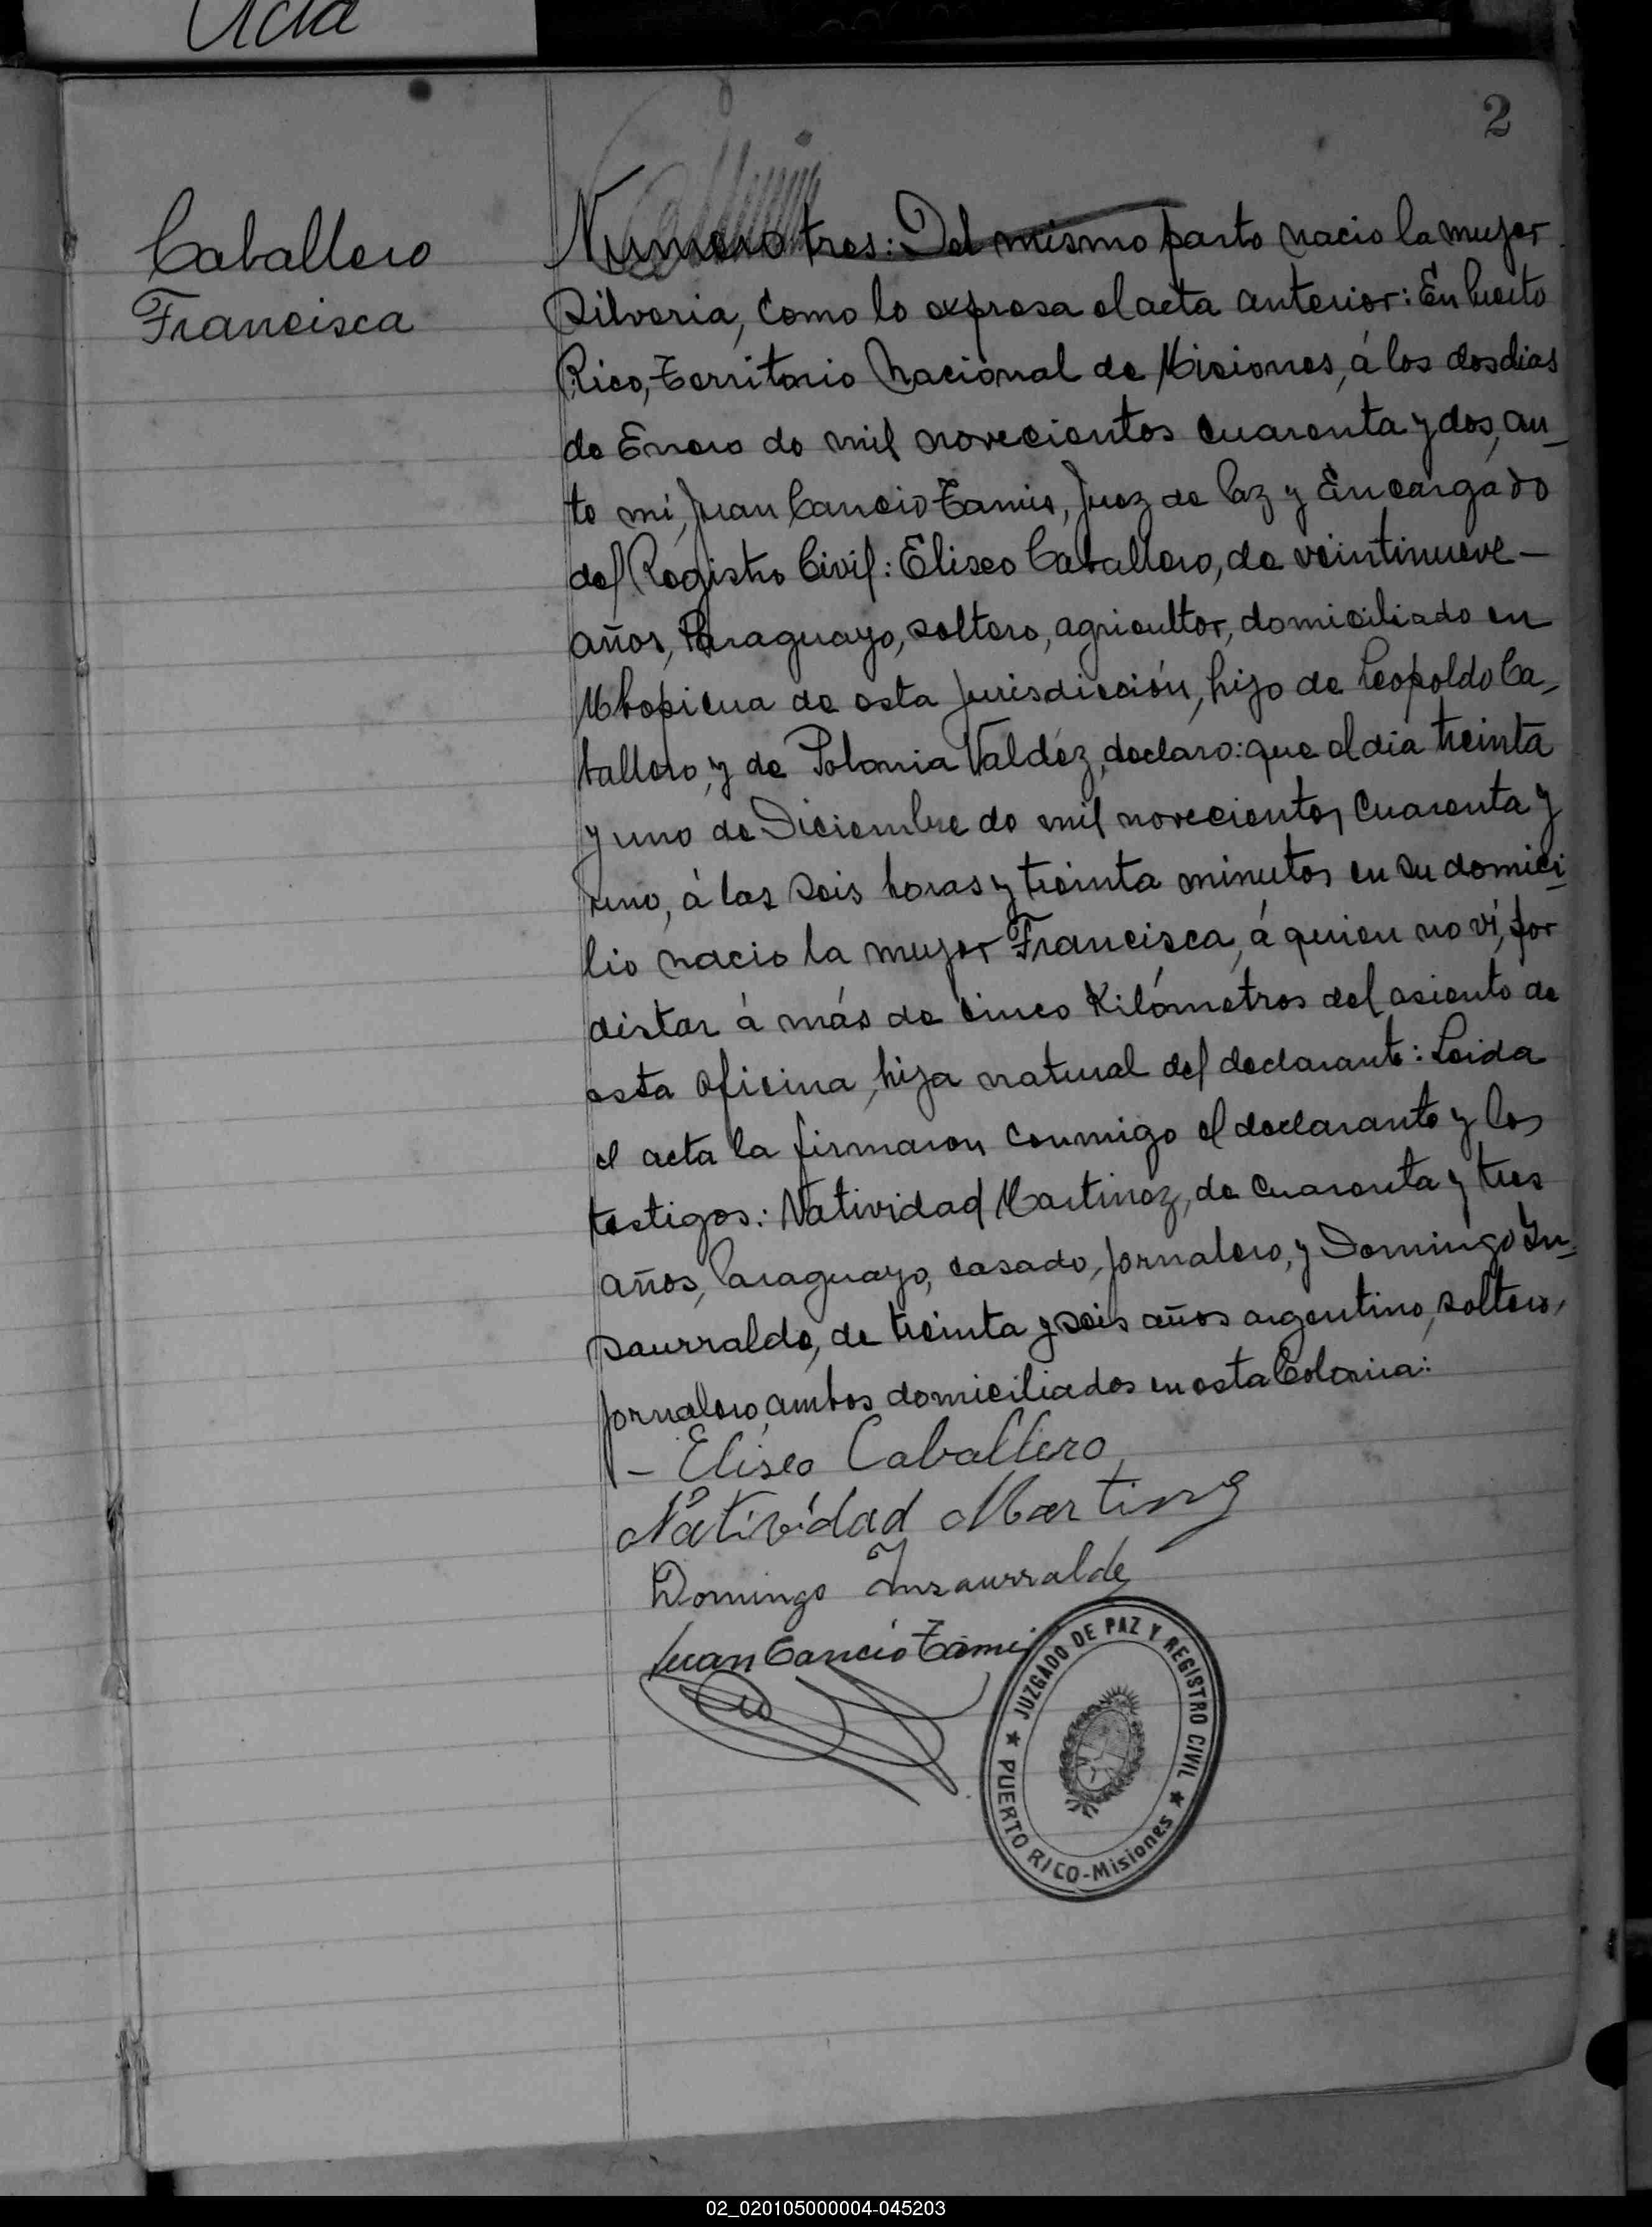 Acta
2
Caballero
Francisca
Numero tres: Del mismo parto nacio la mujer
Silveria, como lo expresa el acta anterior: En Puerto
Rico, Territorio Nacional de Misiones, á los dos dias
de Enero de mil novecientos cuarenta y dos, an_
te mi, Juan Cancio Tamis, Juez de Paz y Encargado
del Registro Civil: Eliseo Caballero, de veintinueve —
años, Paraguayo, soltero, agricultor, domiciliado en
Mbopicua de esta jurisdicción, hijo de Leopoldo Ca_
ballero, y de Polonia Valdéz, declaro: que el dia treinta
y uno de Diciembre de mil novecientos cuarenta y
uno, á las seis horas y treinta minutos en su domici_
lio nacio la mujer Francisca, á quien no ví, por
distar á más de cinco Kilómetros del asiento de
esta oficina, hija natural del declarante: Leida
el acta la firmaron conmigo el declarante y los
testigos: Natividad Martinez, de cuarenta y tres
años, Paraguayo, casado, jornalero, y Domingo In_
saurralde, de treinta y seis años argentino, soltero,
jornalero, ambos domiciliados en esta Colonia:
— Eliseo Caballero
Natividad Martinez
Domingo Insaurralde
Juan Cancio Tamis
JUZGADO DE PAZ Y REGISTRO CIVIL
PUERTO RICO-Misiones
02_020105000004-045203